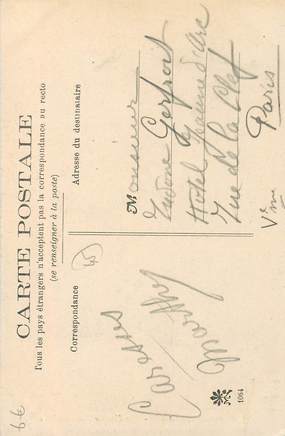 CARTE POSTALE
Tous les pays étrangers n'acceptent pas la correspondance au recto
(se renseigner à la poste)
Correspondance
Adresse du destinataire
45
Caresses
Marthe
Monsieur
Gerfaut
Hotel Jeanne d'Arc
Rue de la Clef
Paris
V me
1064
6€